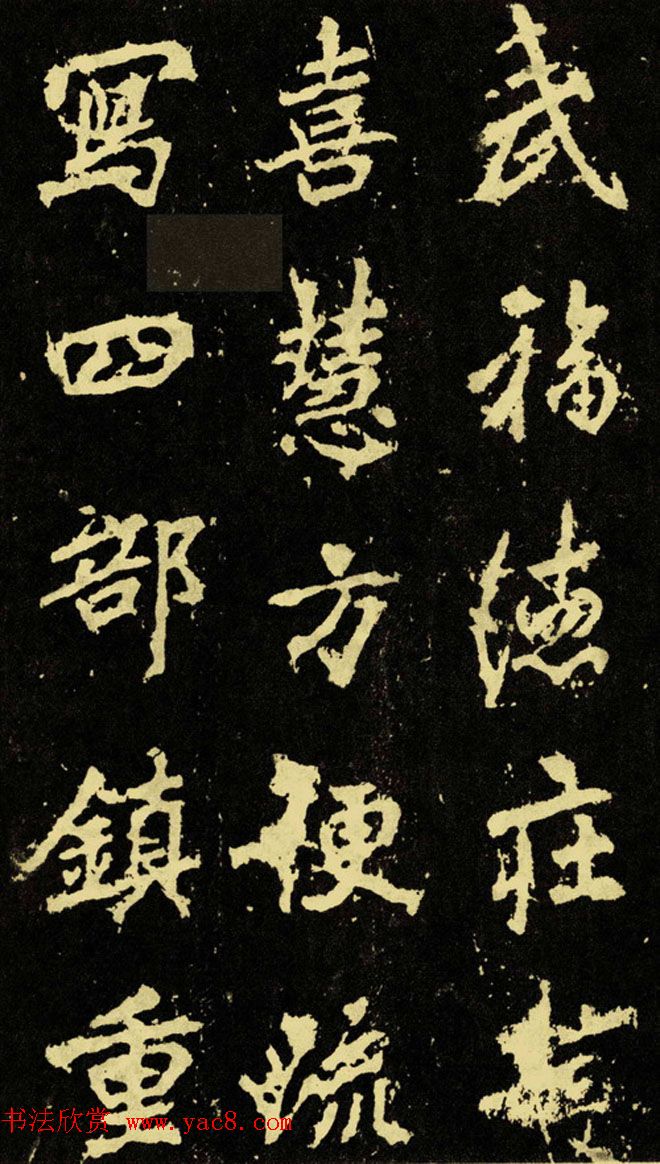 武福德庄
喜慧方便流
寫四部鎮重
书法欣赏 www.yac8.com